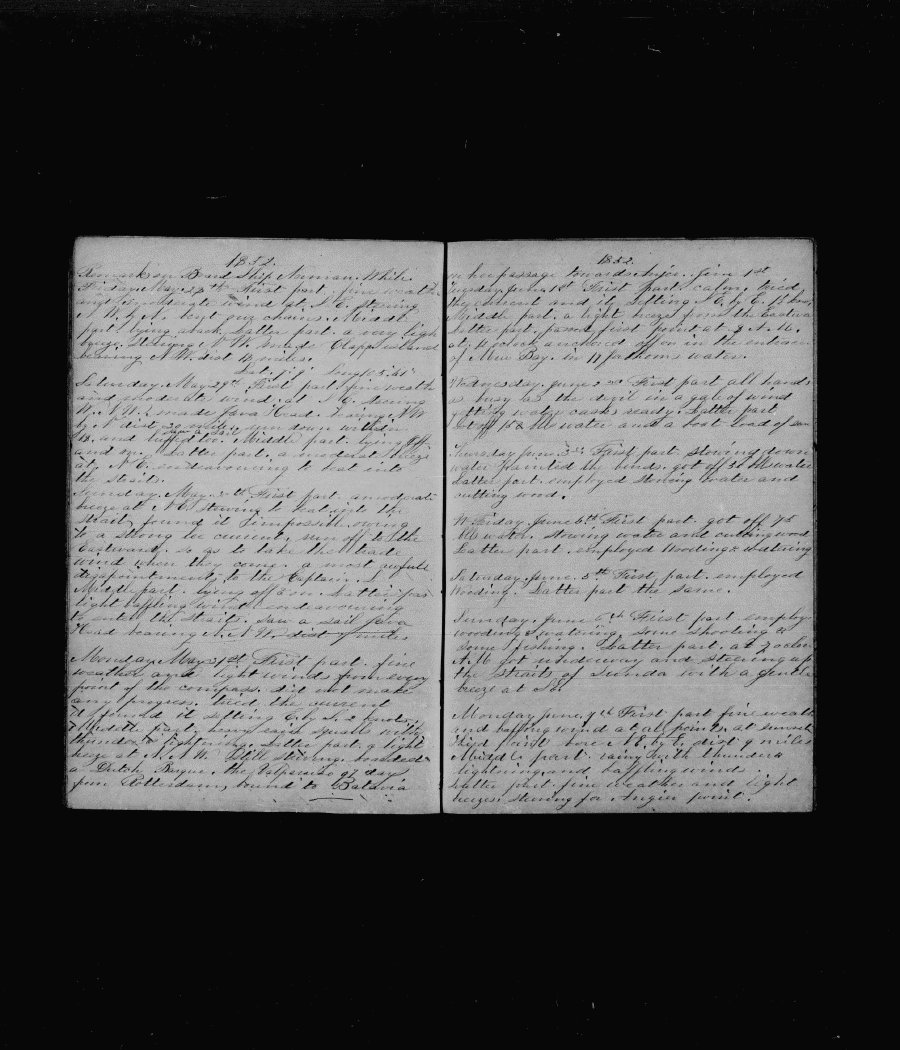 1852.
Remarks on Board Ship
Friday May 28th First part fine weather
and moderate wind at N.E. steering
N.W. by N. kept our chains. Middle
part lying aback. Latter part a very light
breze. Steering N.W. made Clapps island
bearing N.W. dist 14 miles.
Saturday May 29th First part fine weather
and moderate wind at N.E. steering
W.N.W. made Java Head. bearing NW
by N dist 20 miles. run down within
saw a sail
and luffed to. Middle part. lying off
and on. Latter part. a moderate breeze
at N.E. endeavouring to beat into
the straits.
Sunday. May. 30th First part. a moderate
breeze at N.E. steering to beat into the
Straits, found it impossible owing
to a strong current, run off to the
Eastward. so as to take the trade
wind when they come. a most awful
disapointment, to the Captain.
Middle part. lying off & on. Latter part
light baffling wind endeavouring
to enter the Straits. saw a sail Java
Head bearing N.N.W. dist 7 miles
Monday May 31st. First part. fine
weather and light winds from every
point of the compass. did not make
any progress. tried the current
& found it setting E. by S. 2 knots.
Middle part, heavy rain squalls with
thunder & lightning. Latter part a light
breeze at N.N.W. Still steering. boarded
a Dutch Barque. the 91 days
from Rotterdam, bound to Batavia
1852.
on her passage towards Anjier. June 1st
Tuesday June 1st First part calm. tried
the current and it setting N.E. by E. 1½ knots
Middle part. a light breeze from the Eastern
Latter part. passed first point at 8 A.M.
at 11 o'clock anchored off on the entrance
of Mew Bay. in 17 fathoms water.
Wednesday. June 2nd First part all hands
as busy as the devil in a gale of wind
getting water casks ready. Latter part
Got off 152 bbls water and a boat load of
Thursday June 3rd First part stowing down
water painted the bends. got off bbls water
Latter part employed stowing water and
cutting wood.
Friday. June 4th First part. got off 75
bbls water. stowing water and cutting wood
Latter part. employed Wooding & watering
Saturday June. 5th First part. employed
Wooding. Latter part the same.
Sunday. June 6th First part employ
wooding & watering some shooting &
some fishing. Latter part. at 7 oclock
A.M got underway and steering up
the Straits of Sunda with a gentle
breeze at So.
Monday June. 7th First part fine weath
and baffling wind at all points. at sunset
third point bore N.E. by E. dist 9 miles
Middle part. rainy with thunder &
lightning and baffling winds
Latter part fine weather and light
breezes steering for Angier point.